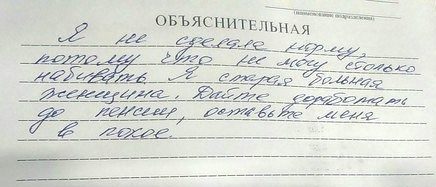 (наименование подразделения)
ОБЪЯСНИТЕЛЬНАЯ
Я не сделала норму,
потому что не могу столько
набивать. Я старая больная
женщина. Дайте доработать
до пенсии, оставьте меня
в покое.